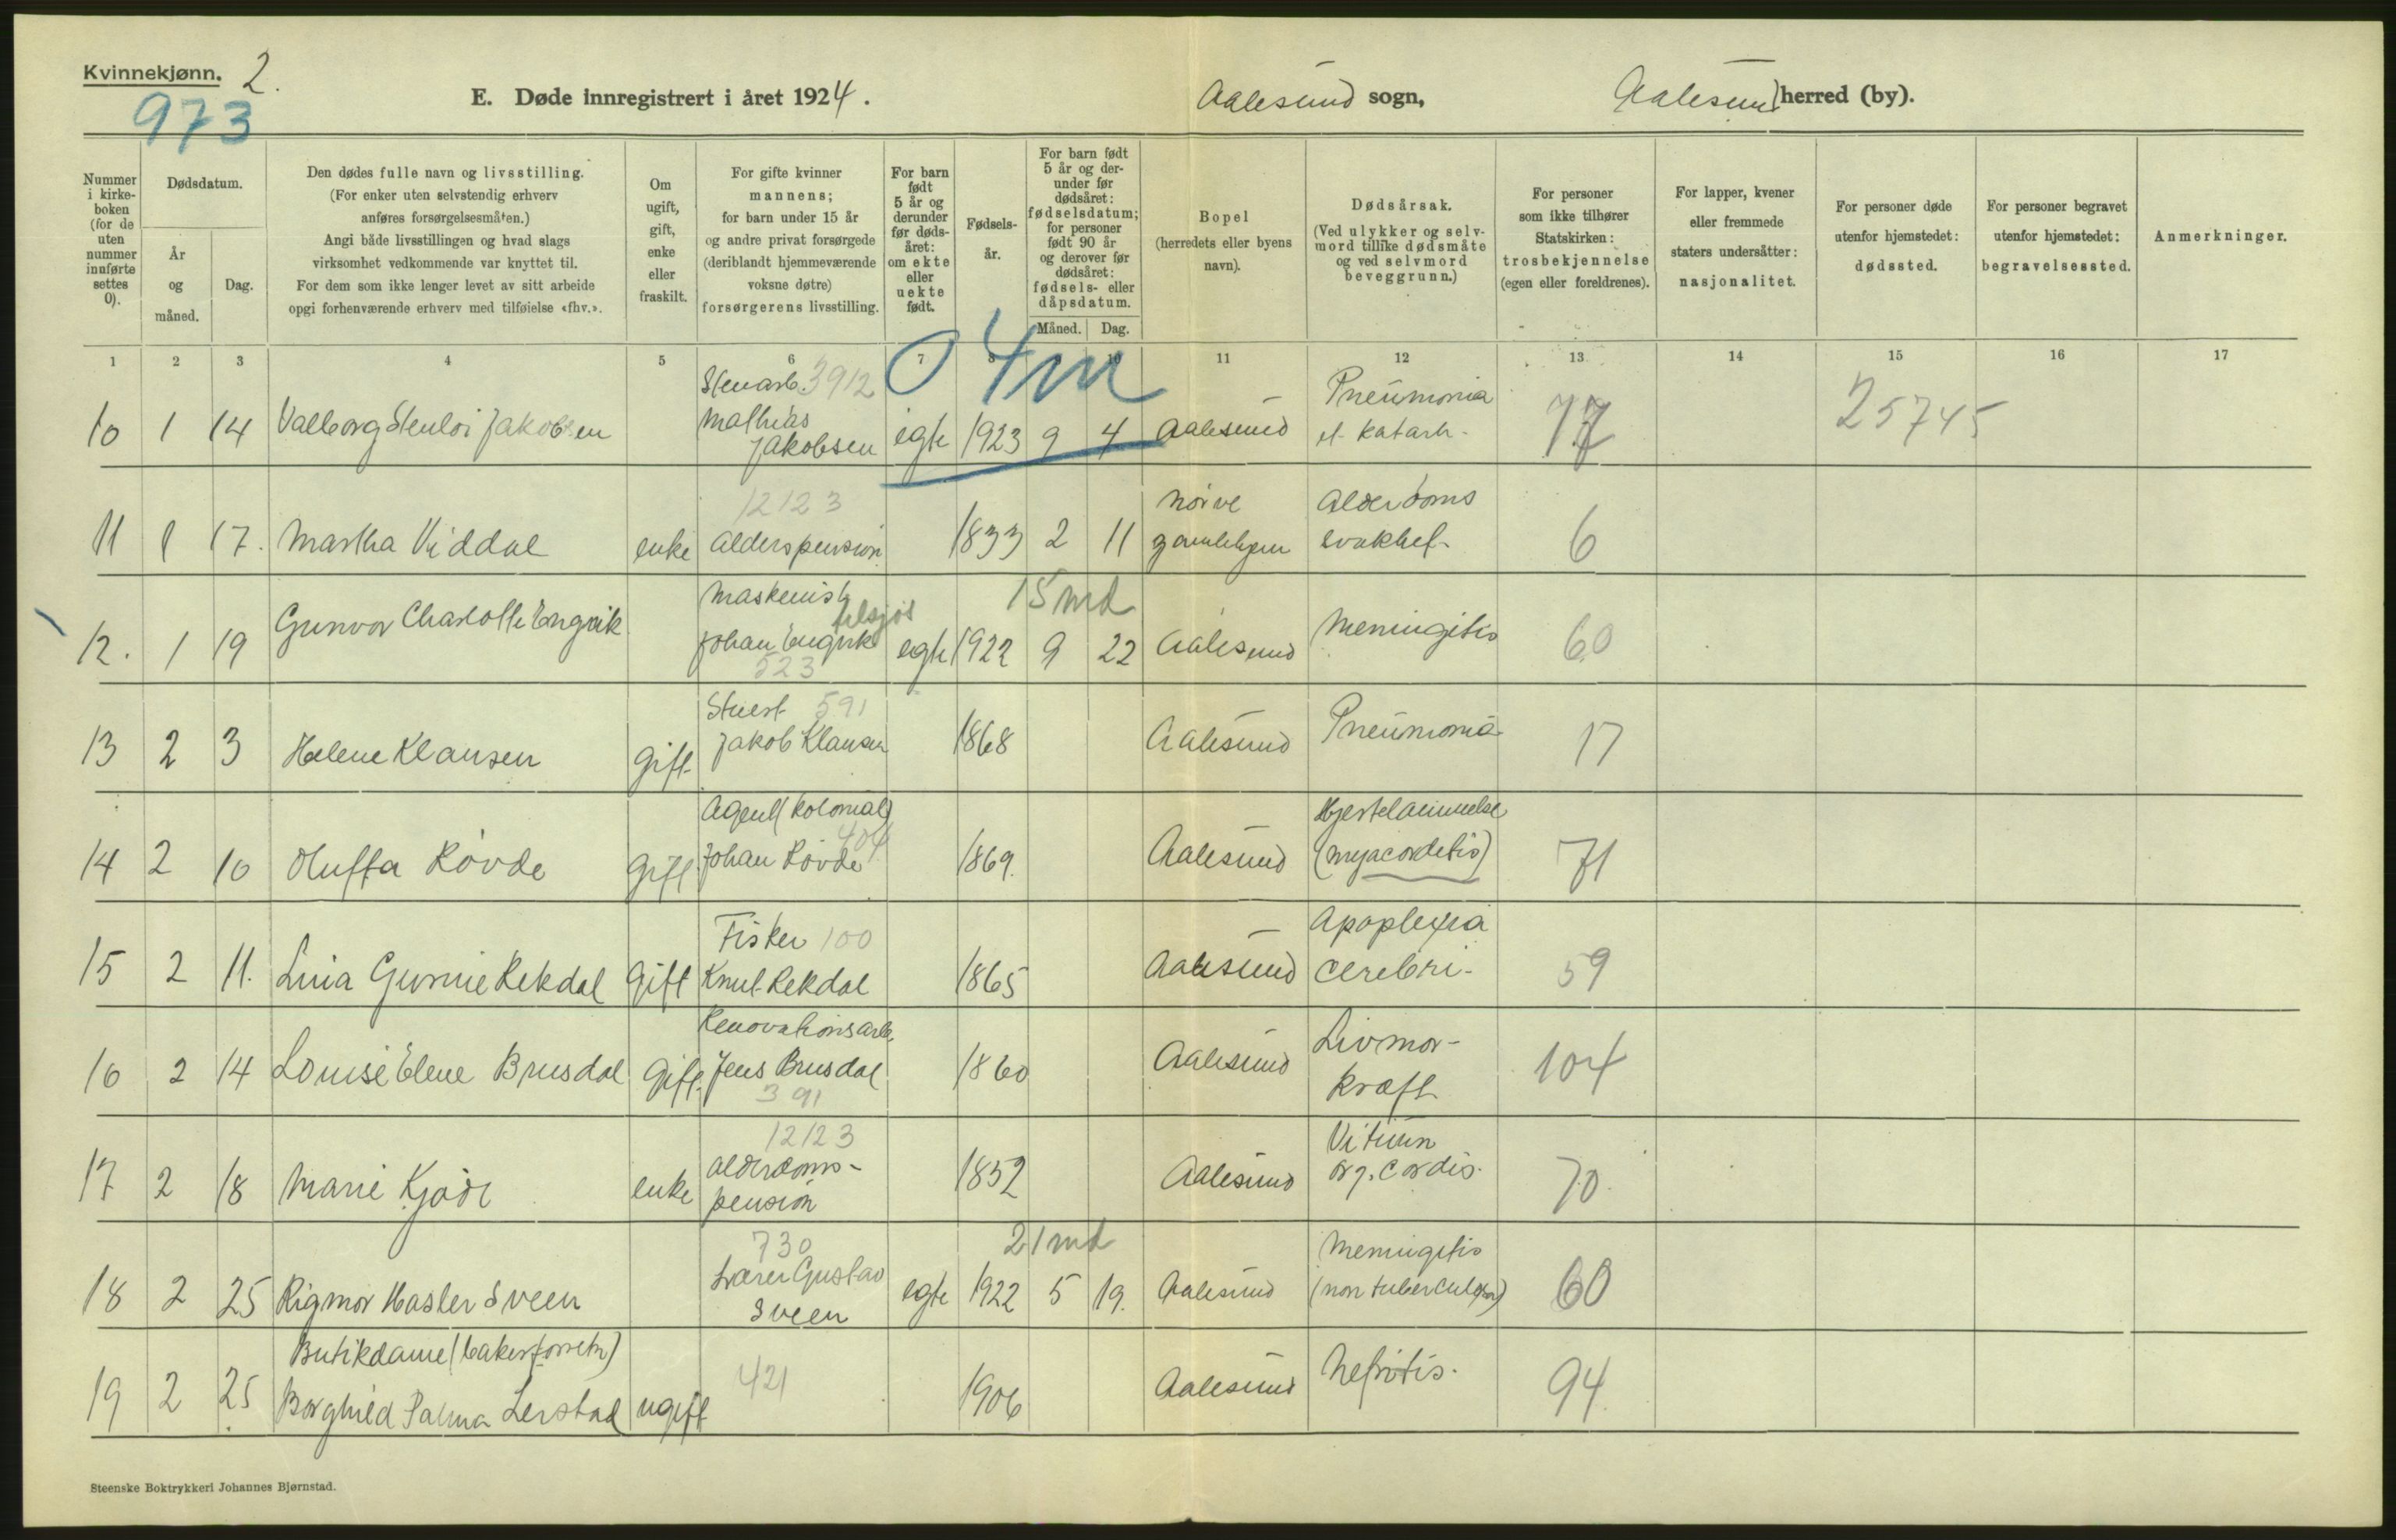 Kvinnekjønn. 2.
973
E. Døde innregistrert i året 1924. Aalesund sogn, Aalesund herred (by).
Nummer i kirkeboken (for de uten nummer innførte settes 0).
Dødsdatum.
År og måned.
Dag.
Den dødes fulle navn og livsstilling.
(For enker uten selvstendig erhverv anføres forsørgelsesmåten.)
Angi både livsstillingen og hvad slags virksomhet vedkommende var knyttet til.
For dem som ikke lenger levet av sitt arbeide opgi forhenværende erhverv med tilføielse «fhv.».
Om ugift, gift, enke eller fraskilt.
For gifte kvinner mannens; for barn under 15 år og andre privat forsørgede (deriblandt hjemmeværende voksne døtre) forsørgerens livsstilling.
For barn født 5 år og derunder før dødsåret: om ekte eller uekte født.
Fødselsår.
For barn født 5 år og derunder før dødsåret: fødselsdatum; for personer født 90 år og derover før dødsåret: fødsels- eller dåpsdatum.
Måned. Dag.
Bopel (herredets eller byens navn).
Dødsårsak.
(Ved ulykker og selvmord tillike dødsmåte og ved selvmord beveggrunn.)
For personer som ikke tilhører Statskirken: trosbekjennelse (egen eller foreldrenes).
For lapper, kvener eller fremmede staters undersåtter: nasjonalitet.
For personer døde utenfor hjemstedet: dødssted.
For personer begravet utenfor hjemstedet: begravelsessted.
Anmerkninger.
1 2 3 4 5 6 7 8 10 11 12 13 14 15 16 17
0 4 m
Stenarb. 3912 Pneumonia
10 1 14 Valborg Stenloi Jakobsen Mathias Jakobsen egte 1923 9 4 Aalesund et katarh. 17 25745
12123 Nørve Alderdoms
11 1 17. Martha Viddal enke Alderspension 1833 2 11 gamlehjem svakhet 6
Maskinist tilsjøs 15 md
12. 1 19 Gunvor Charlotte Engvik Johan Engvik egte 1922 9 22 Aalesund Meningitis 60
523
591
13 2 3 Helene Klausen Gift Jakob Klausen 1868 Aalesund Pneumonia 17
Agent (kolonial) 404 Hjertelammelse
14 2 10 Oluffa Røvde Gift Johan Røvde 1869. Aalesund (myacorditis) 71
Fisker 100 Apoplexia
15 2 11. Lina Gurine Rekdal Gift Knut Rekdal 1865 Aalesund cerebri. 59
Renovationsarb. Livmor-
16 2 14 Louise Elene Brusdal Gift Jens Brusdal 1860 Aalesund kræft 104
391
12123 Vitium
17 2 18 Marie Kjøde enke alderdoms-pension 1852 Aalesund org. cordis. 70.
730 21 md Meningitis
18 2 25 Rigmor Hasler Sveen Lærer Gustav Sveen egte 1922 5 19. Aalesund (non tuberculosa) 60
Butikdame (bakerforretn)
19 2 25 Borghild Palma Lerstad ugift 421 1906 Aalesund Nefritis. 94.
Steenske Boktrykkeri Johannes Bjørnstad.